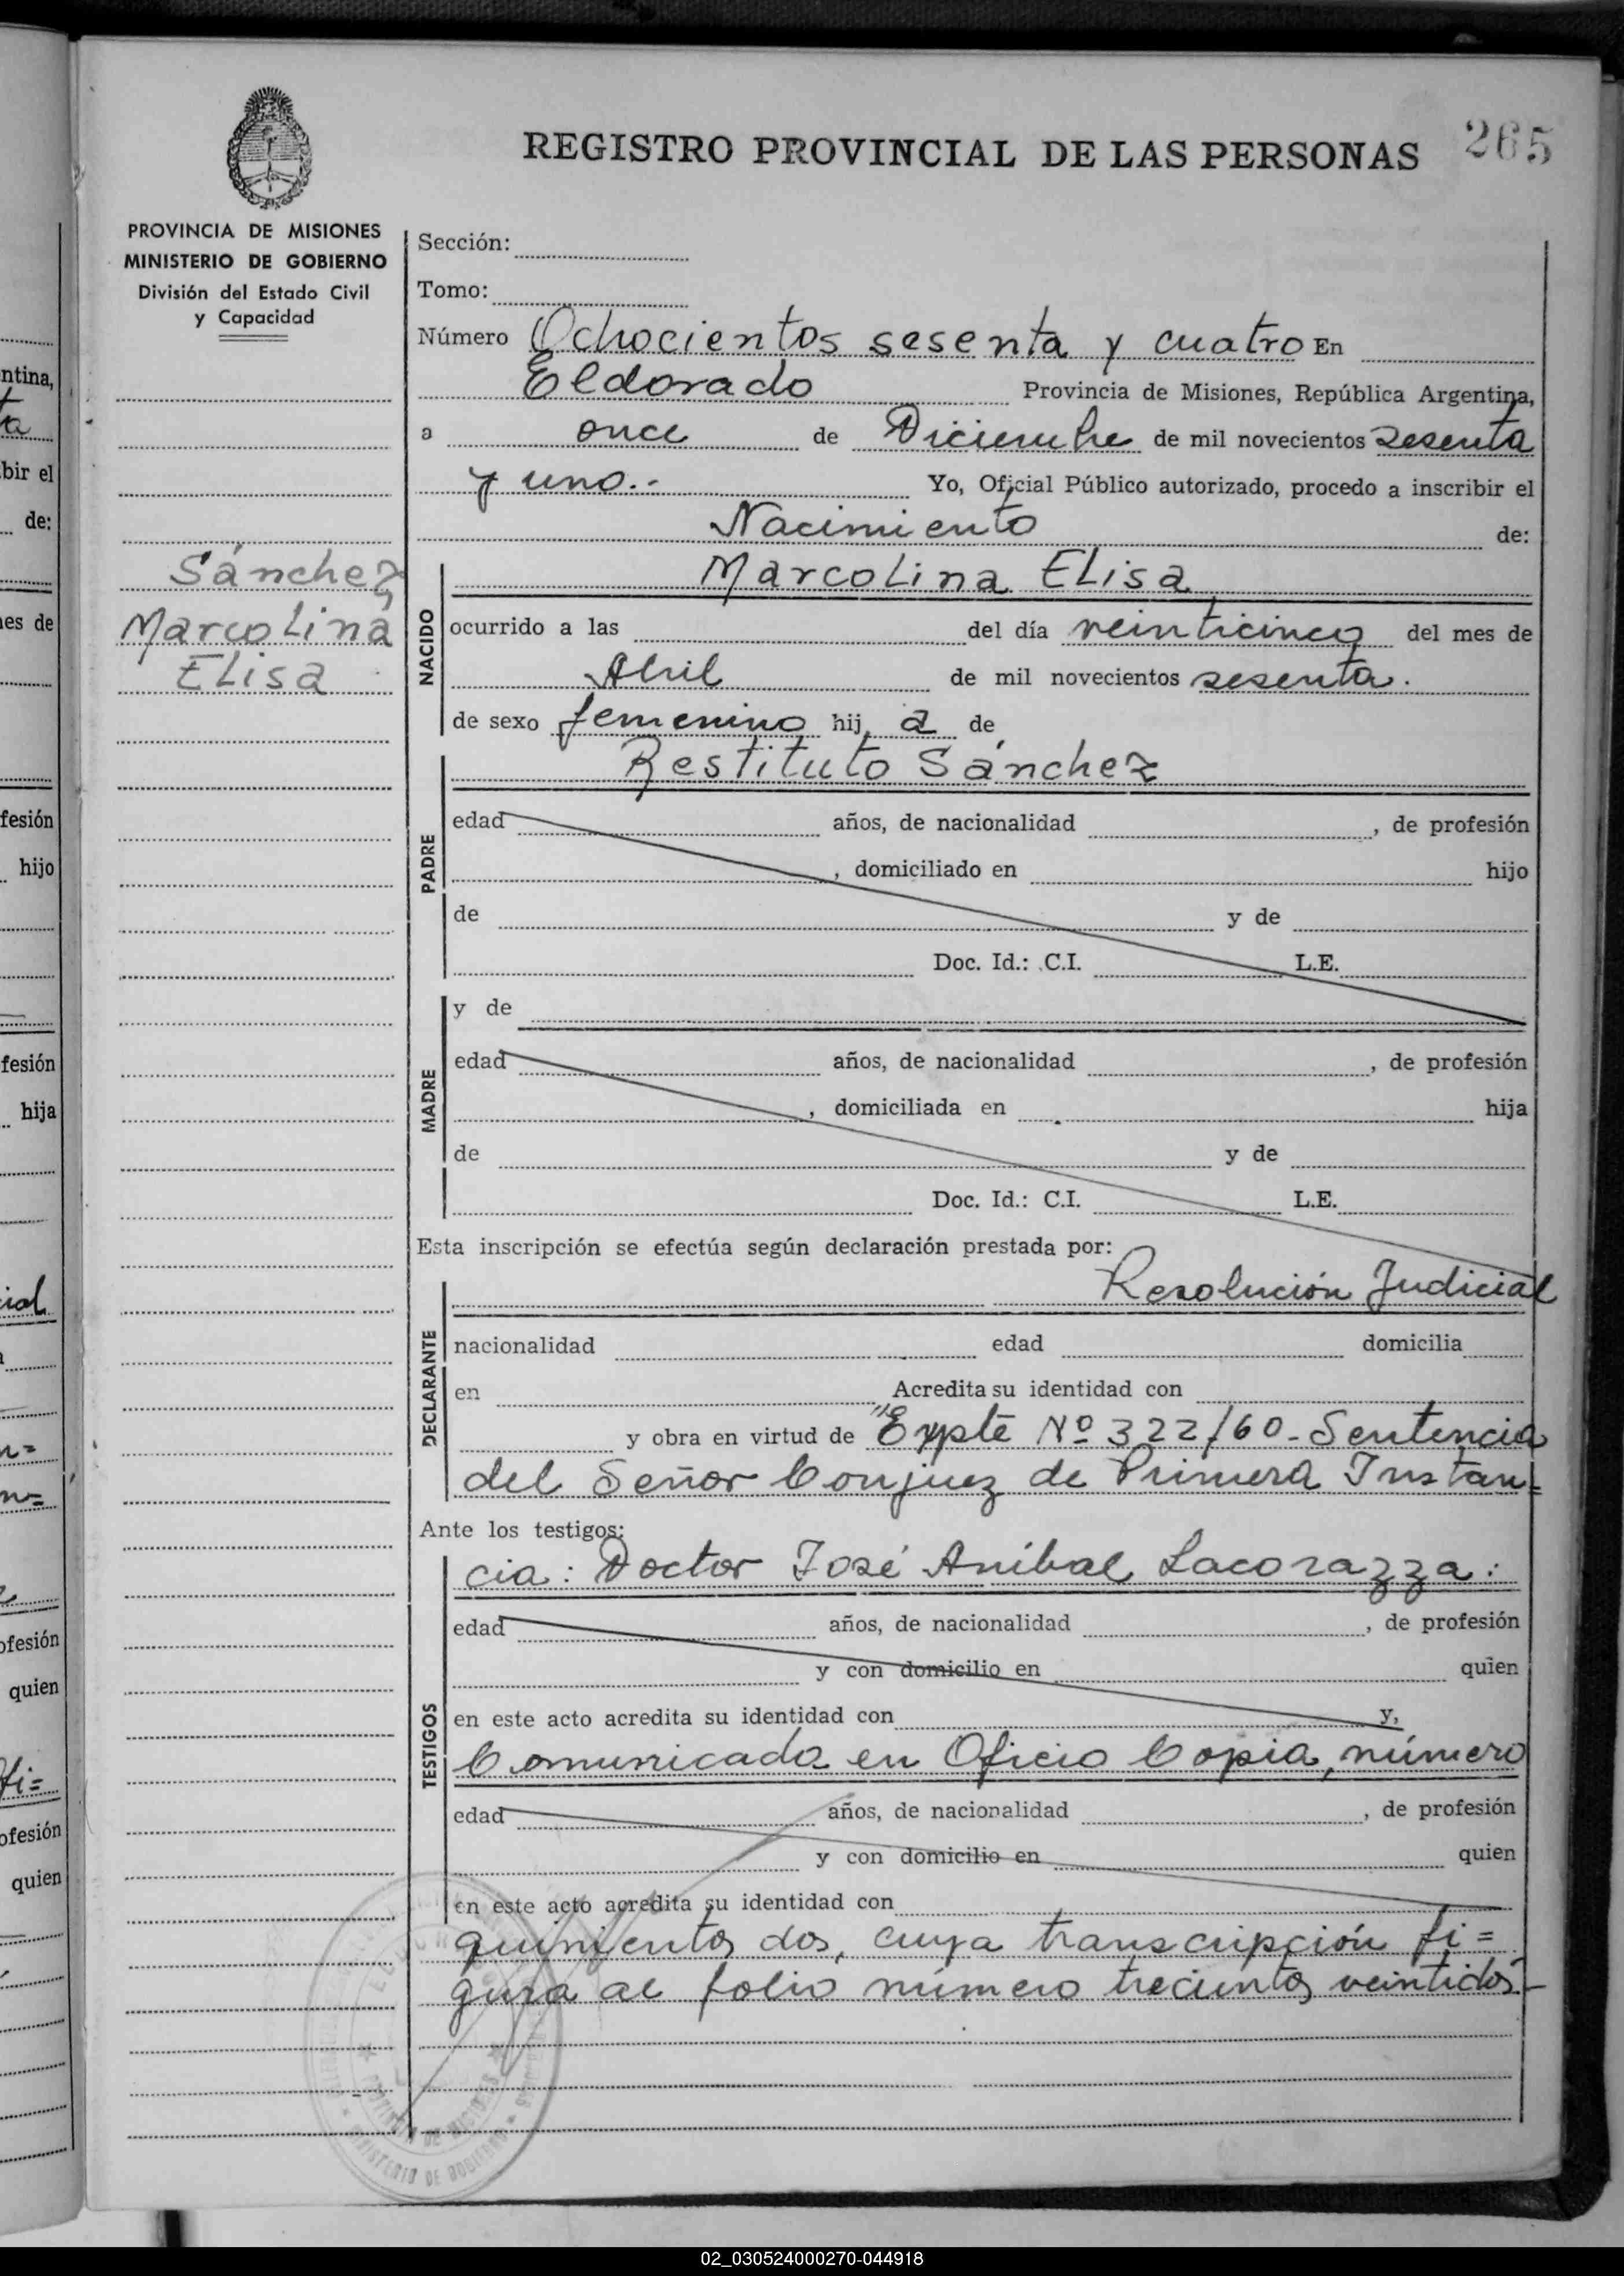 265
REGISTRO PROVINCIAL DE LAS PERSONAS
PROVINCIA DE MISIONES
MINISTERIO DE GOBIERNO
División del Estado Civil
y Capacidad
Sánchez
Marcolina
Elisa
Sección:
Tomo:
Número Ochocientos sesenta y cuatro En
Eldorado Provincia de Misiones, República Argentina,
a once de Diciembre de mil novecientos sesenta
y uno.- Yo, Oficial Público autorizado, procedo a inscribir el
Nacimiento de:
NACIDO
Marcolina Elisa
ocurrido a las del día veinticinco del mes de
Abril de mil novecientos sesenta.
de sexo femenino hij a de
PADRE
Restituto Sánchez
edad años, de nacionalidad , de profesión
, domiciliado en hijo
de y de
Doc. Id.: C.I. L.E.
MADRE
y de
edad años, de nacionalidad , de profesión
, domiciliada en hija
de y de
Doc. Id.: C.I. L.E.
Esta inscripción se efectúa según declaración prestada por:
DECLARANTE
Resolución Judicial
nacionalidad edad domicilia
en Acredita su identidad con
y obra en virtud de "Expte Nº 322/60- Sentencia
del Señor Conjuez de Primera Instan=
Ante los testigos:
TESTIGOS
cia: Doctor José Aníbal Lacorazza:
edad años, de nacionalidad , de profesión
y con domicilio en quien
en este acto acredita su identidad con y,
Comunicada en Oficio Copia, número
edad años, de nacionalidad , de profesión
y con domicilio en quien
en este acto acredita su identidad con
quinientos dos, cuya transcripción fi=
gura al folio número trecientos veintidós-
MINISTERIO DE GOBIERNO
ntina,
ta
bir el
de:
es de
fesión
hijo
fesión
hija
ial
n=
n=
ofesión
quien
fi=
ofesión
quien
02_030524000270-044918